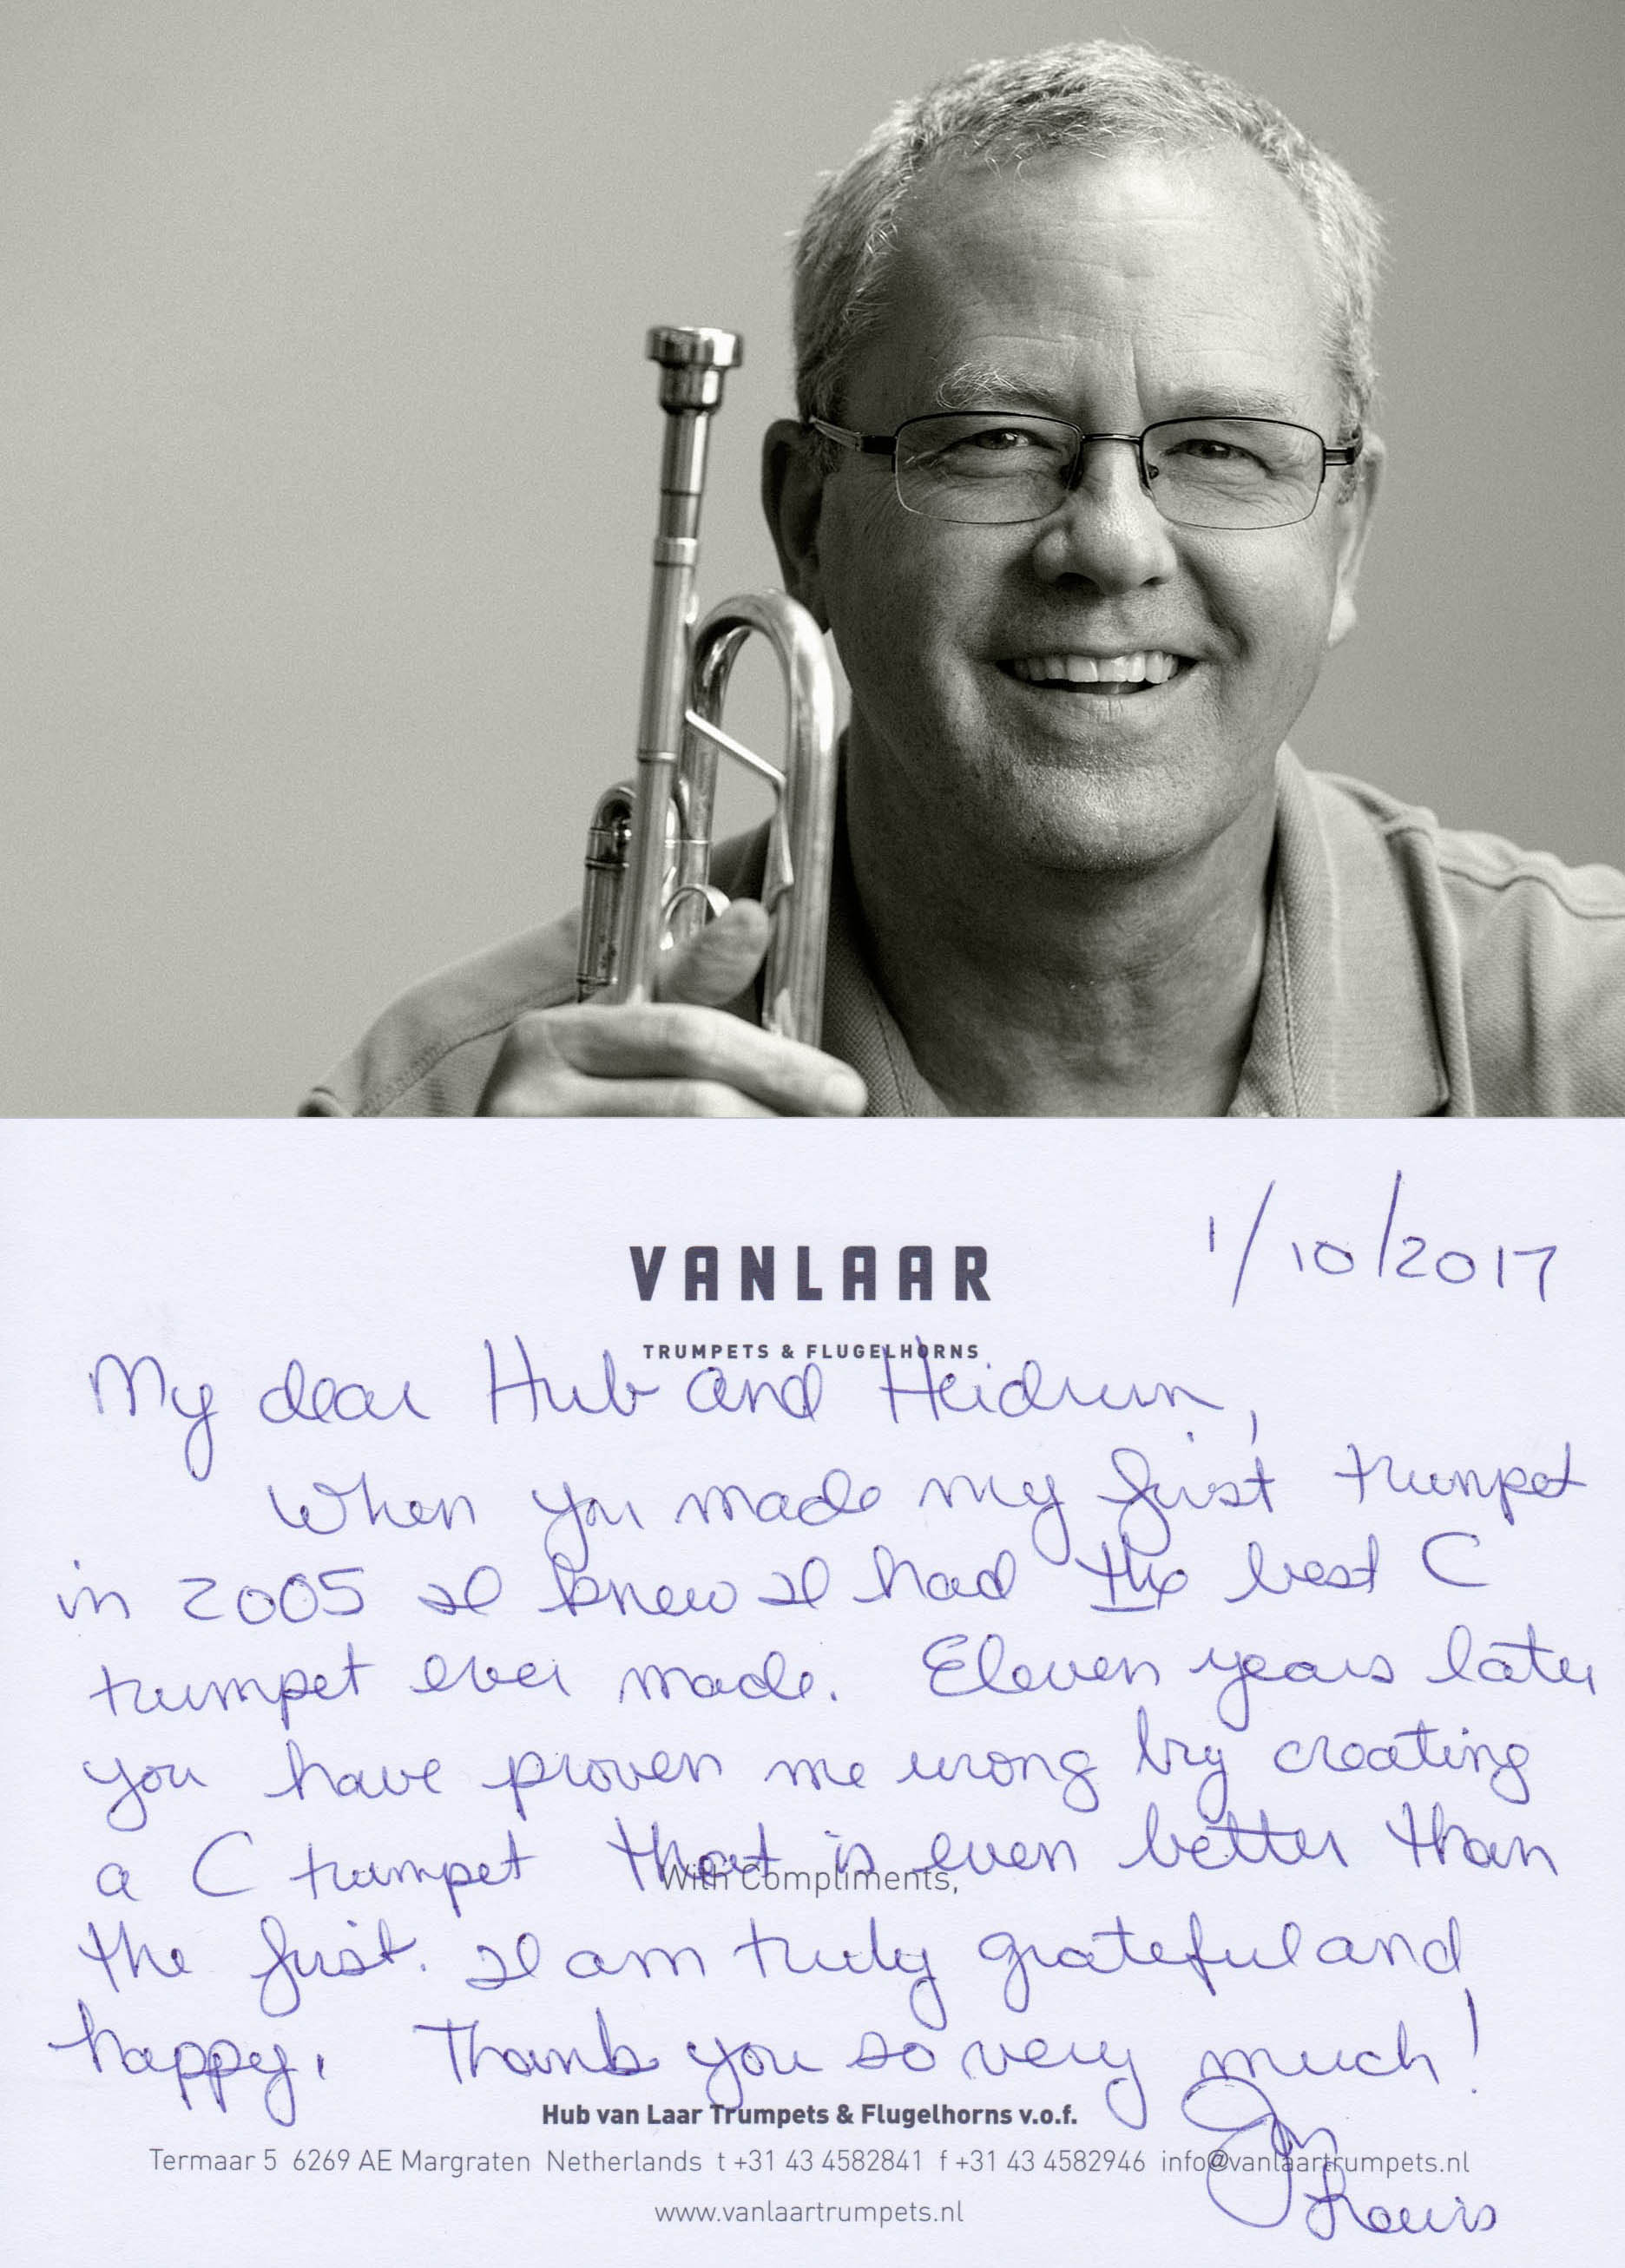 1/10/2017
VANLAAR
TRUMPETS & FLUGELHORNS
My dear Hub and Heidrun,
When you made my first trumpet
in 2005 I knew I had the best C
trumpet ever made. Eleven years later
you have proven me wrong by creating
a C trumpet that is even better than
With Compliments,
the first. I am truly grateful and
happy. Thank you so very much!
Hub van Laar Trumpets & Flugelhorns v.o.f.
Termaar 5 6269 AE Margraten Netherlands t +31 43 4582841 f +31 43 4582946 info@vanlaartrumpets.nl
www.vanlaartrumpets.nl
Louis